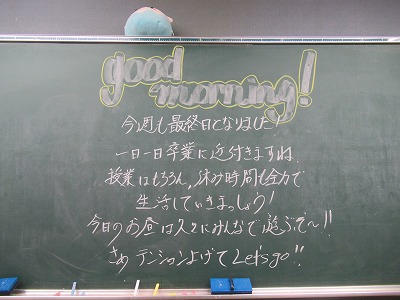 good
morning!
今週も最終日となりました!
一日一日卒業に近付きますね。
授業はもちろん、休み時間も全力で
生活していきましょう!
今日のお昼は久々にみんなで遊ぶぞ〜!!
さぁ テンションよげて Let's go!!